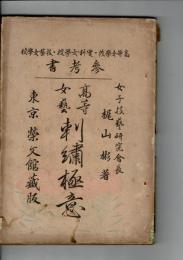 高等女學校・實科女學校・技藝女學校
參考書
女子技藝研究會長
梶山彬著
高等
女藝
刺繡極意
東京 榮文館藏版